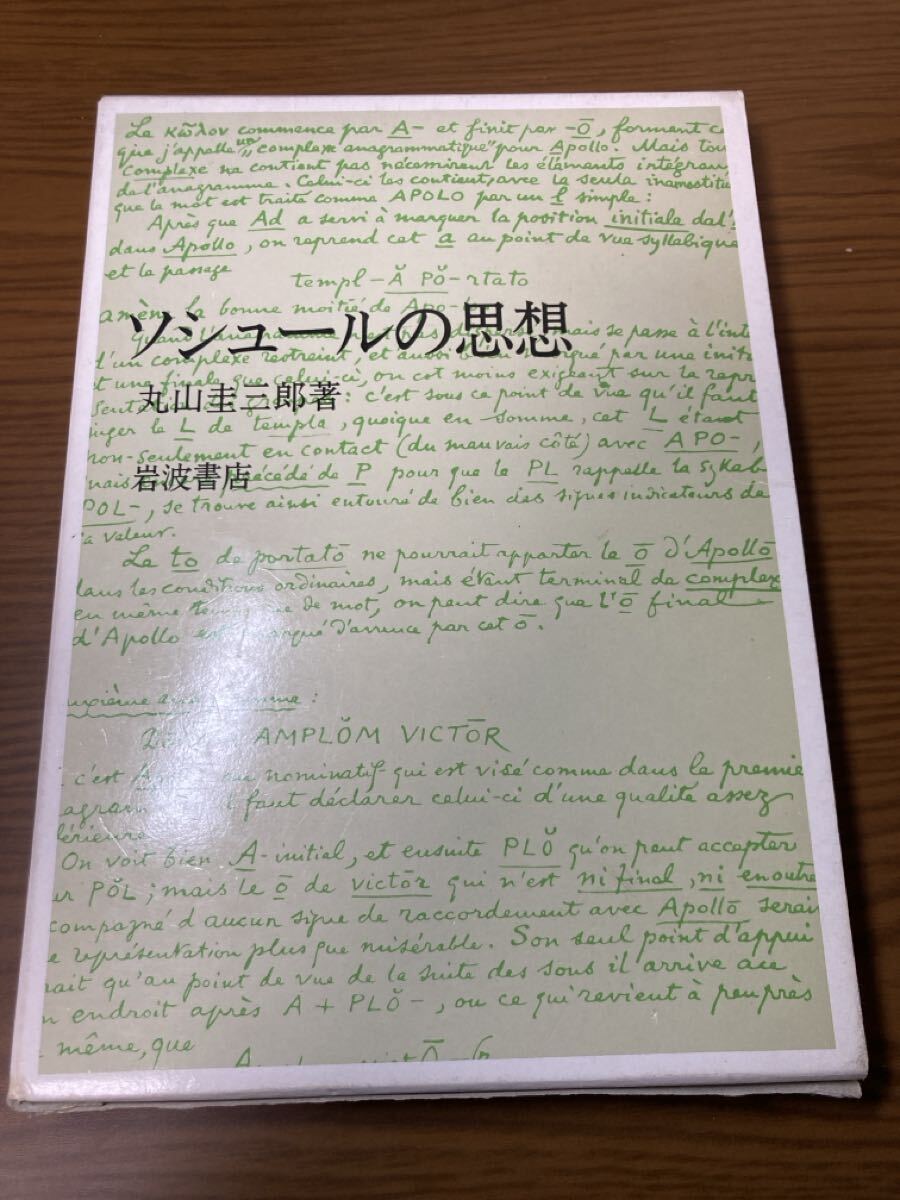 Le κῶλον commence par A- et finit par -Ō, forment c
que j'appelle un "complexe anagrammatique" pour Apollo. Mais tou
complexe ne contient pas nécessairement les éléments intégran
de l'anagramme. Celui-ci les contient, avec la seule
que le mot est traité comme APOLO par un l simple:
Après que Ad a servi à marquer la position initiale de l'
dans Apollo, on reprend cet a au point de vue syllabique
et le passage
templ-Ă PŎ-rtato
amèn la bonne moitié de Apo-
ソシュールの思想
Quand l'anagramme pas mais se passe à l'inté
d'un complexe restreint, et aussi par une initi
et une finale que celui-ci, on est moins exigeant sur la repr
丸山圭三郎著
: c'est sous ce point de vue qu'il faut
juger le L de templa, quoique en somme, cet L étant
non-seulement en contact (du mauvais côté) avec APO-,
岩波書店
mais précédé de P pour que le PL rappelle la syllab
POL-, se trouve ainsi entouré de bien des signes indicateurs de
sa valeur.
Le to de portatō ne pourrait apporter le ō d'Apollō
dans les conditions ordinaires, mais étant terminal de complexe
en même temps que de mot, on peut dire que l'ō final
d'Apollo est marqué d'avance par cet ō.
uxième anagramme:
AMPLŎM VICTŌR
c'est au nominatif qui est visé comme dans le premie
agram il faut déclarer celui-ci d'une qualité assez
férieure
On voit bien A-initial, et ensuite PLŎ qu'on peut accepter
ur PŎL; mais le ō de victōr qui n'est ni final, ni en outre
compagné d'aucun signe de raccordement avec Apollō serai
e représentation plus que misérable. Son seul point d'appui
rait qu'au point de vue de la suite des sons il arrive à ce
n endroit après A + PLŎ-, ou ce qui revient à peu près
même, que